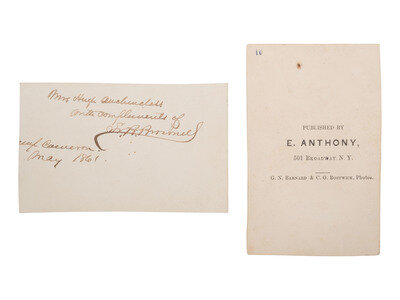 Mrs Hugh Auchincloss
with compliments of
Cameron
May 1861
10
PUBLISHED BY
E. ANTHONY,
501 BROADWAY N. Y.
G. N. BARNARD & C. O. BOSTWICK, Photos.